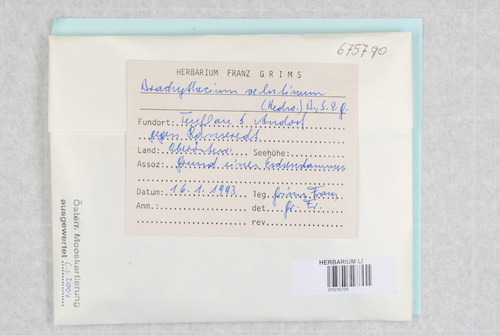 675790
HERBARIUM FRANZ GRIMS
Brachythecium velutinum
(Hedw.) B., S. & G.
Fundort: b. Andorf
gegen
Land: Oberösterr. Seehöhe:
Assoz: Grund eines
Datum: 16.1.1993 leg. Grims Franz
Anm.: det. Gr. Fr.
rev.
Österr. Mooskartierung
ausgewertet
HERBARIUM LI